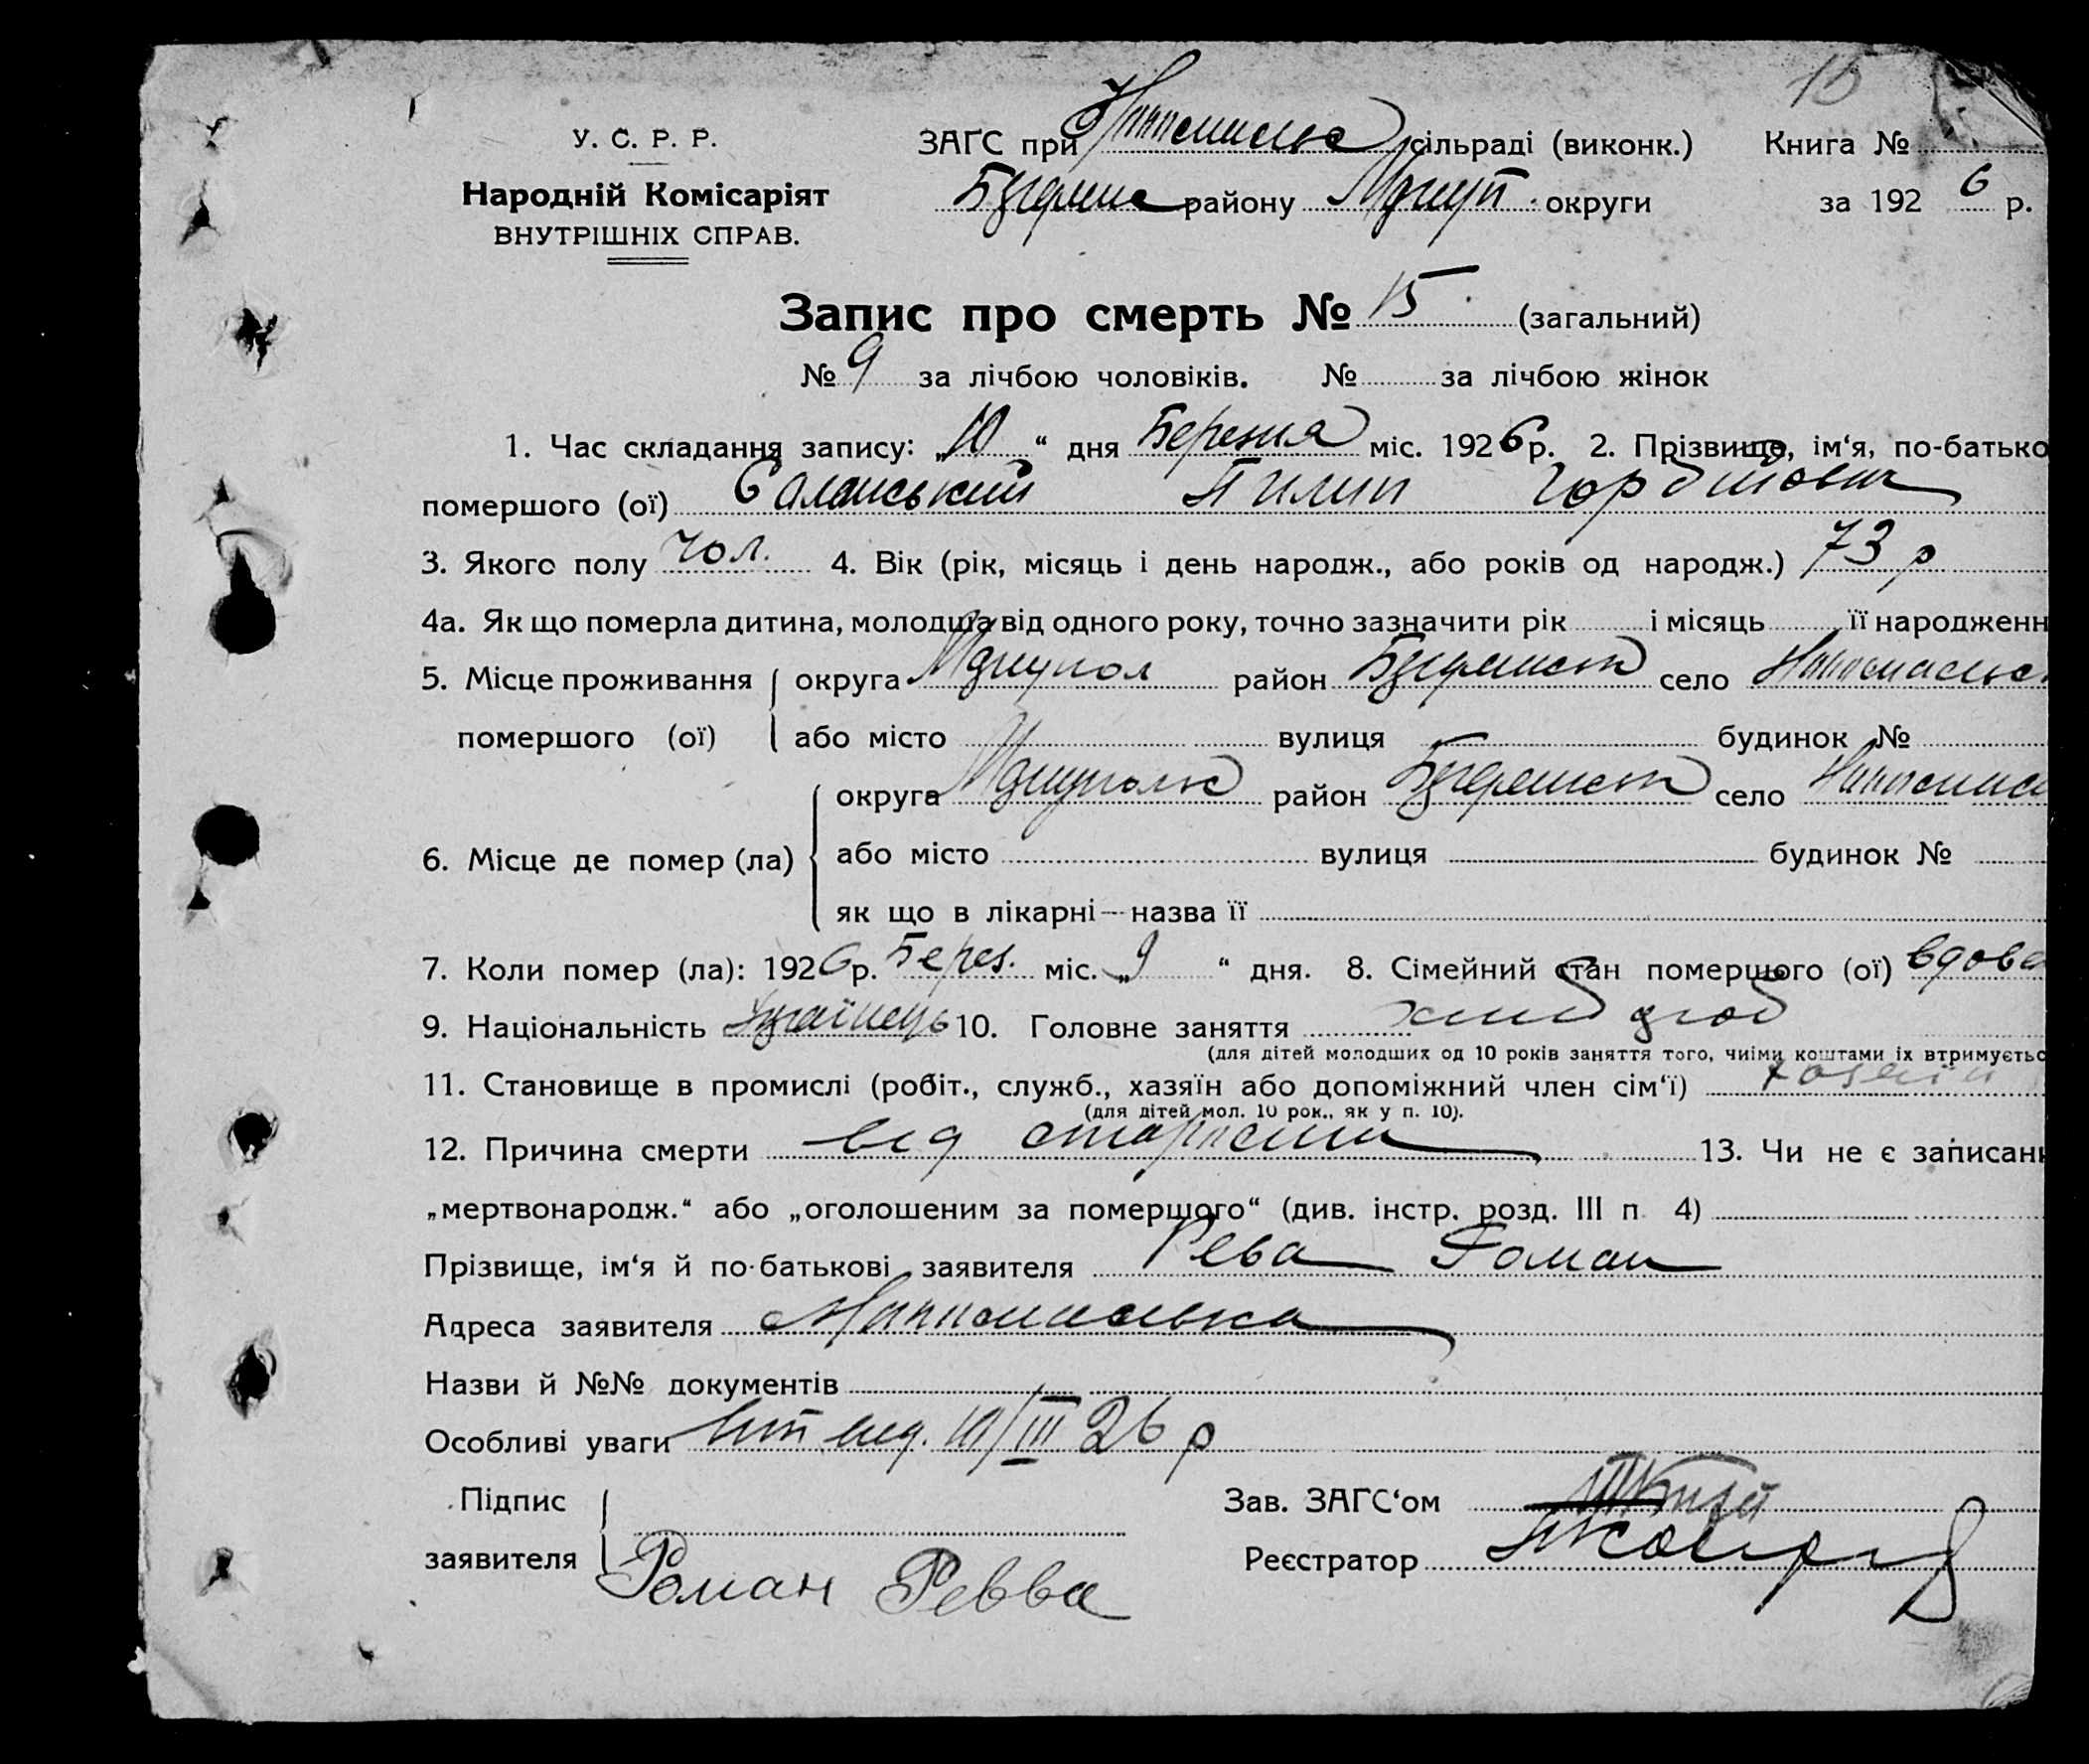 15
У. С. Р. Р.
Народній Комісаріят
ВНУТРІШНІХ СПРАВ.
ЗАГС при сільраді (виконк.) Книга №
району округи за 1926 р.
Запис про смерть № 15 (загальний)
№ 9 за лічбою чоловіків. № за лічбою жінок
1. Час складання запису: „10“ дня Березня міс. 1926 р. 2. Прізвище, ім‘я, по-батько
помершого (ої) Пилип
3. Якого полу чол. 4. Вік (рік, місяць і день народж., або років од народж.) 73 р
4а. Як що померла дитина, молодша від одного року, точно зазначити рік і місяць її народженн
5. Місце проживання округа район село
помершого (ої) або місто вулиця будинок №
округа район село
6. Місце де помер (ла) або місто вулиця будинок №
як що в лікарні—назва її
7. Коли помер (ла): 1926 р. Берез. міс. „9“ дня. 8. Сімейний стан помершого (ої) вдове
9. Національність Українець 10. Головне заняття хліб
(для дітей молодших од 10 років заняття того, чиїми коштами їх втримуєтьс
11. Становище в промислі (робіт., служб., хазяїн або допоміжний член сім‘ї) хазяїн
(для дітей мол. 10 рок., як у п. 10).
12. Причина смерти від старости 13. Чи не є записан
„мертвонародж.“ або „оголошеним за помершого“ (див. інстр. розд. III п 4)
Прізвище, ім‘я й по-батькові заявителя Рева Роман
Адреса заявителя
Назви й №№ документів
Особливі уваги 10/III 26 р
Підпис Зав. ЗАГС‘ом
заявителя Роман Ревва Реєстратор